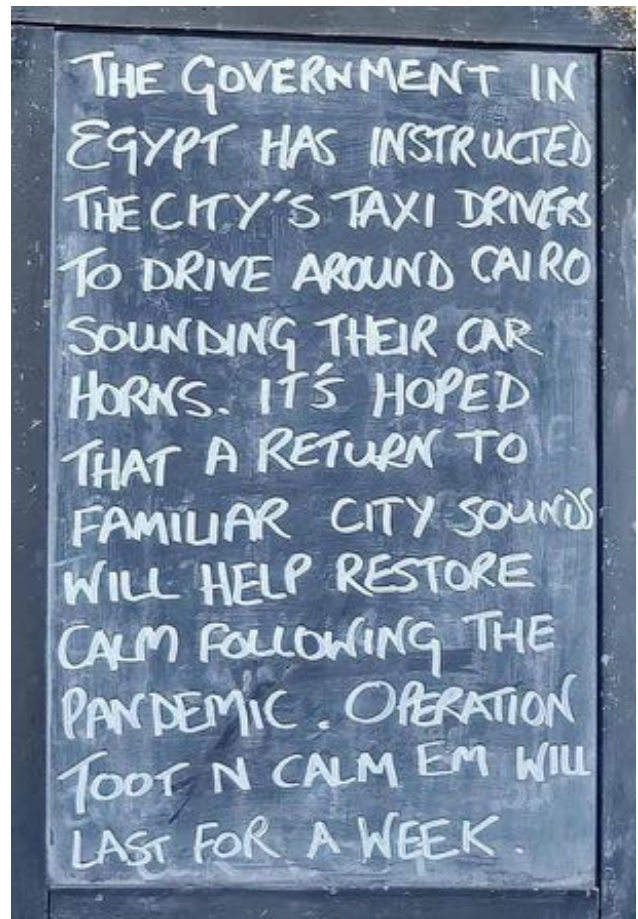 THE GOVERNMENT IN
EGYPT HAS INSTRUCTED
THE CITY'S TAXI DRIVERS
TO DRIVE AROUND CAIRO
SOUNDING THEIR CAR
HORNS. IT'S HOPED
THAT A RETURN TO
FAMILIAR CITY SOUNDS
WILL HELP RESTORE
CALM FOLLOWING THE
PANDEMIC. OPERATION
TOOT N CALM EM WILL
LAST FOR A WEEK.